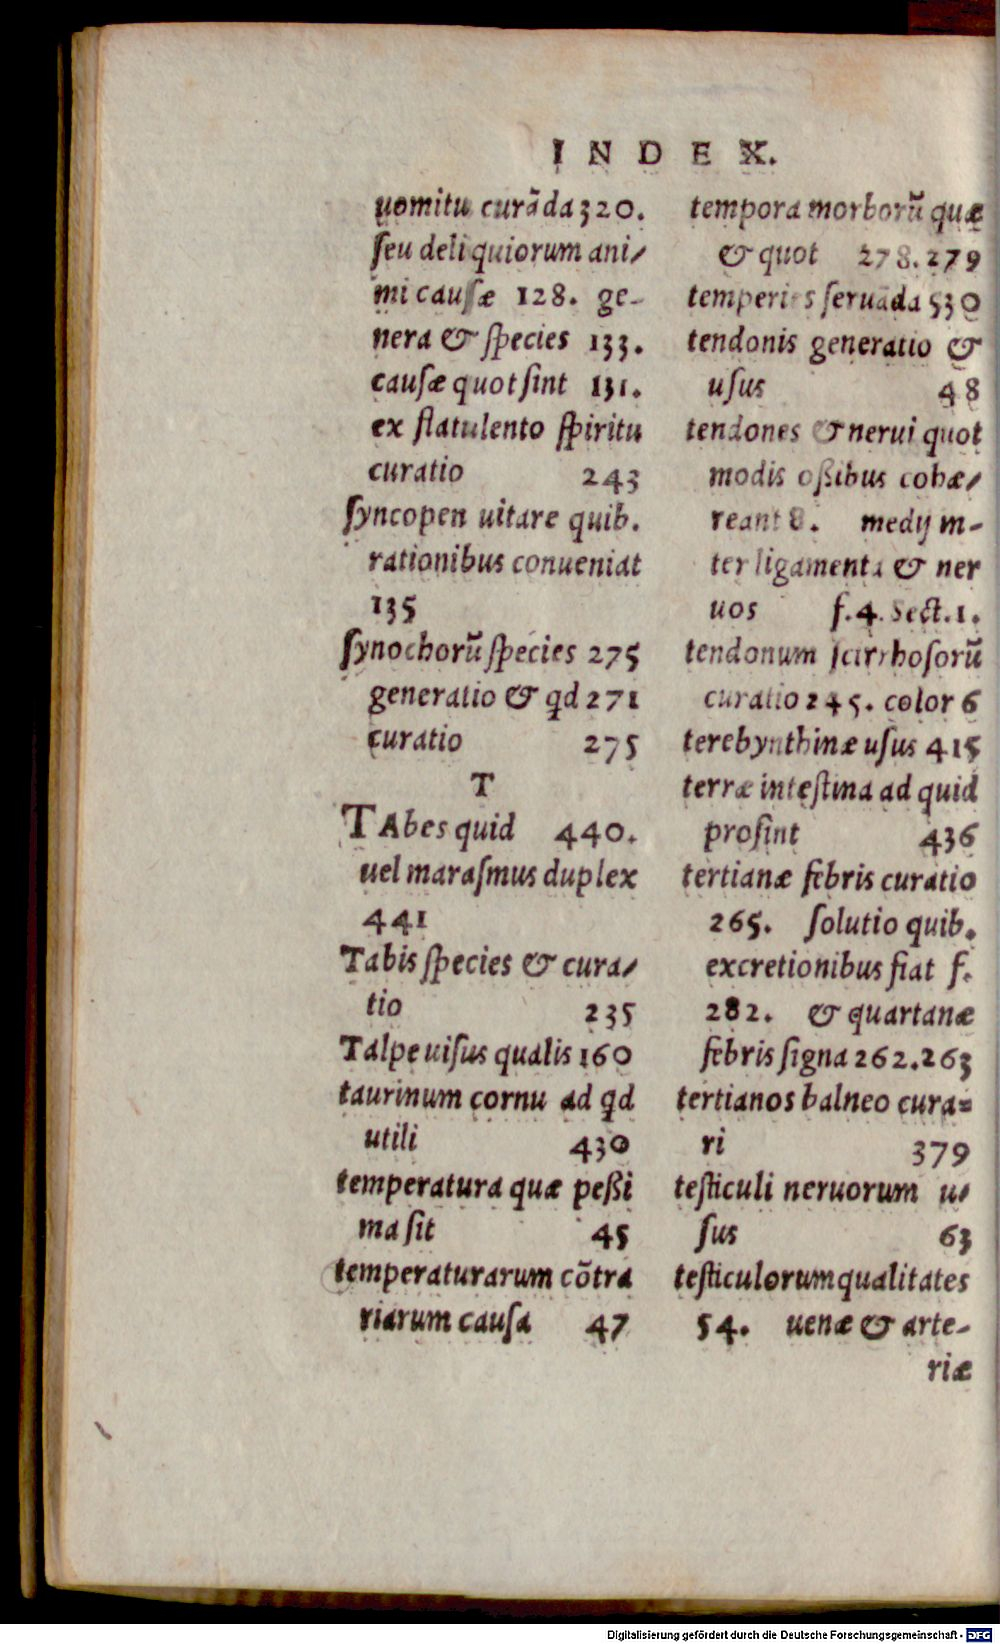 INDEX.
uomitu curãda 320.
ſeu deliquiorum ani/
mi cauſæ 128. ge-
nera & ſpecies 133.
cauſæ quot ſint 131.
ex flatulento ſpiritu
curatio 243
ſyncopen uitare quib.
rationibus conueniat
135
ſynochorũ ſpecies 275
generatio & qd 271
curatio 275
T
TAbes quid 440.
uel maraſmus duplex
441
Tabis ſpecies & cura/
tio 235
Talpe uiſus qualis 160
taurinum cornu ad qd
utili 430
temperatura quæ peßi
ma ſit 45
temperaturarum cõtra
riarum cauſa 47
tempora morborũ quæ
& quot 278.279
temperies ſeruãda 530
tendonis generatio &
uſus 48
tendones & nerui quot
modis oßibus cohæ/
reant 8. medij in-
ter ligamenta & ner
uos f.4. Sect.1.
tendonum ſcirrhoſorũ
curatio 245. color 6
terebynthinæ uſus 415
terræ inteſtina ad quid
proſint 436
tertianæ febris curatio
265. ſolutio quib.
excretionibus fiat f.
282. & quartanæ
febris ſigna 262.263
tertianos balneo cura=
ri 379
teſticuli neruorum u/
ſus 63
teſticulorum qualitates
54. uenæ & arte-
riæ
Digitalisierung gefördert durch die Deutsche Forschungsgemeinschaft - DFG